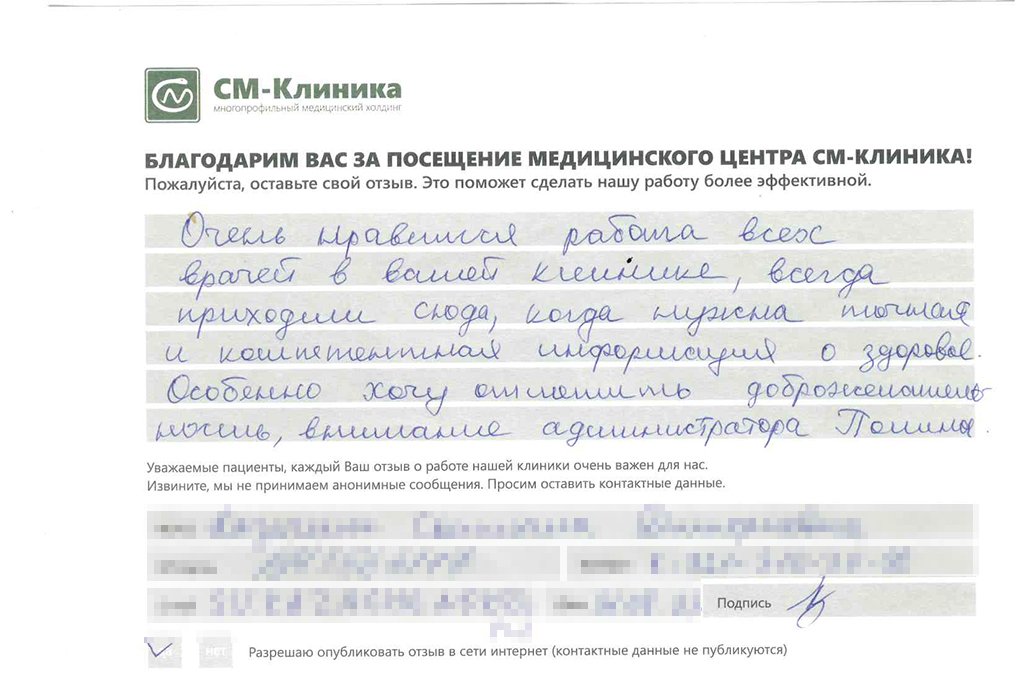 СМ-Клиника
многопрофильный медицинский холдинг
БЛАГОДАРИМ ВАС ЗА ПОСЕЩЕНИЕ МЕДИЦИНСКОГО ЦЕНТРА СМ-КЛИНИКА!
Пожалуйста, оставьте свой отзыв. Это поможет сделать нашу работу более эффективной.
Очень нравится работа всех
врачей в вашей клинике, всегда
приходим сюда, когда нужна точная
и компетентная информация о здоровье.
Особенно хочу отметить доброжелатель
ность, внимание администратора Полины.
Уважаемые пациенты, каждый Ваш отзыв о работе нашей клиники очень важен для нас.
Извините, мы не принимаем анонимные сообщения. Просим оставить контактные данные.
Подпись
нет Разрешаю опубликовать отзыв в сети интернет (контактные данные не публикуются)